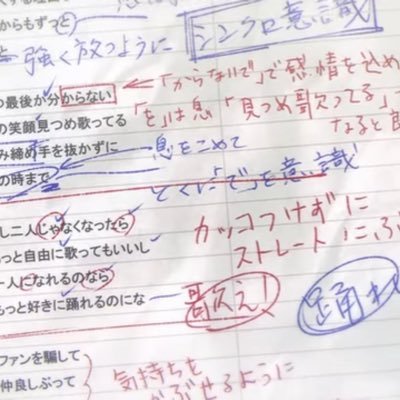 からもずっと
シンクロ意識
強く放つように
最後が分からない
「からないで」で感情を込め
の笑顔見つめ歌ってる
「を」は息「見つめ歌ってる」
なると良
み締め手を抜かずに
息をこめて
の時まで
とくに「で」を意識
し二人じゃなくなったら
カッコつけずに
っと自由に歌ってもいいし
ストレートにぶ
一人になれるのなら
歌え!
踊れ
もっと好きに踊れるのにな
ファンを騙して
気持ちを
仲良しぶって
かぶせるように